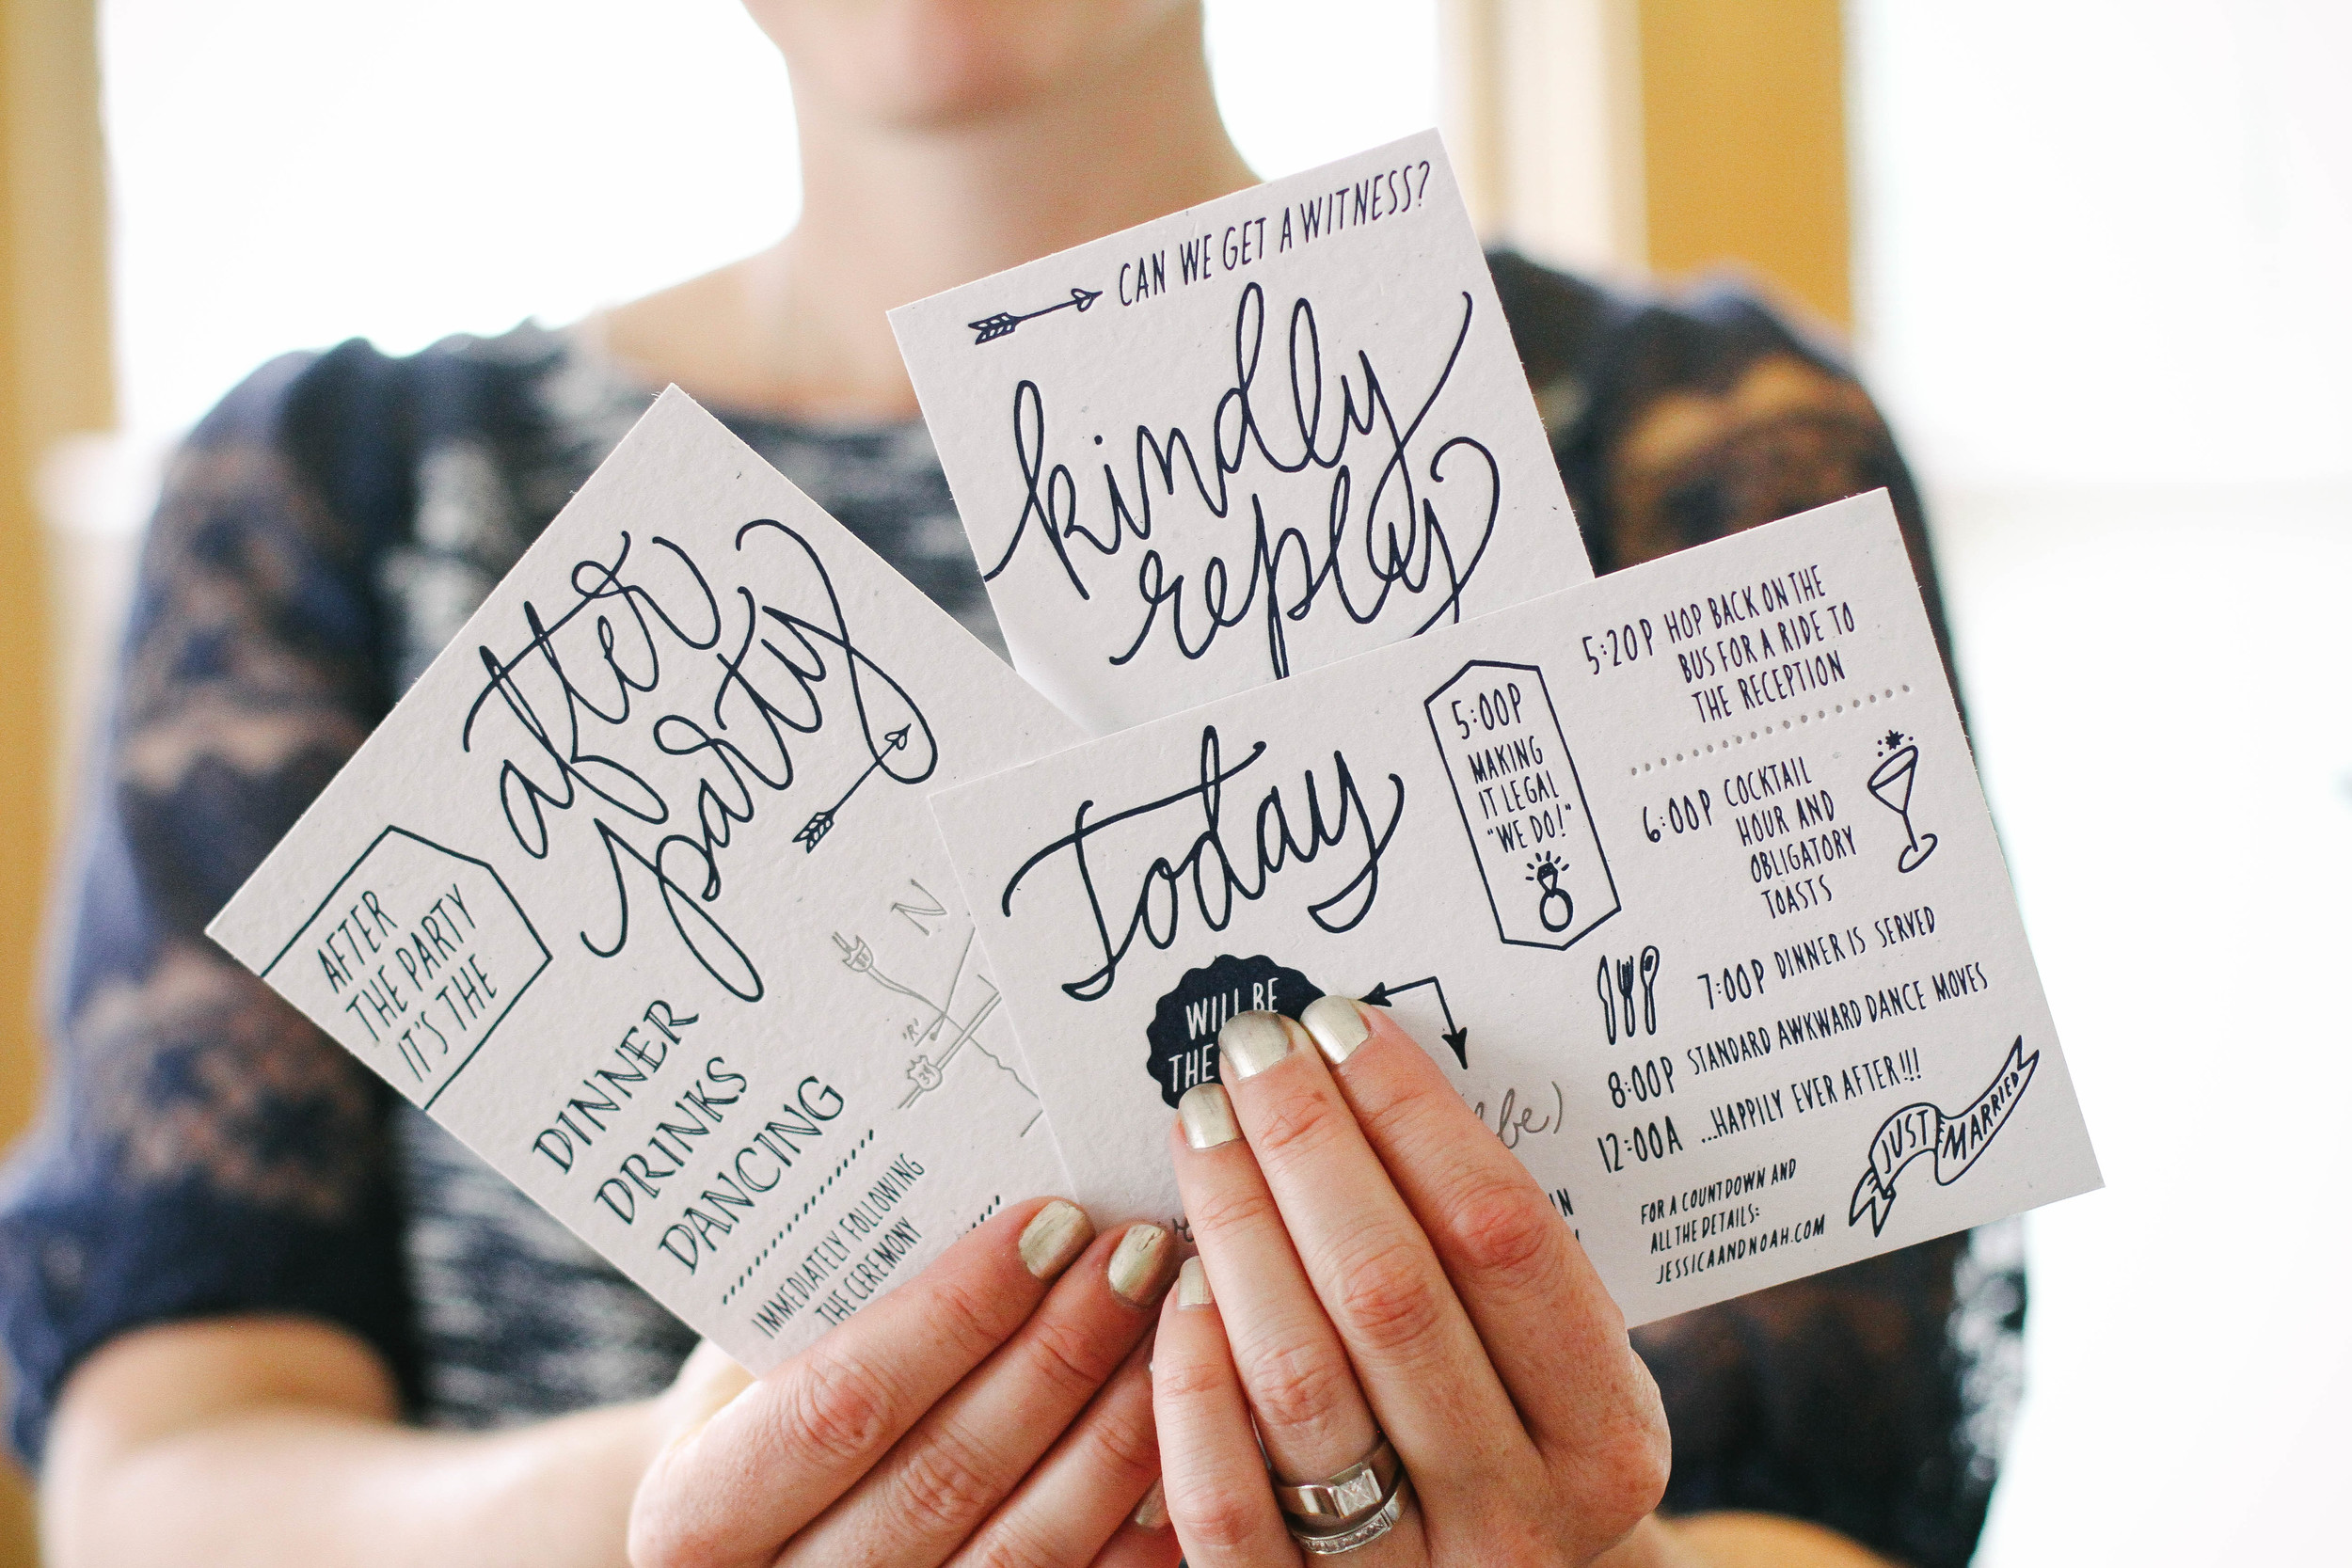 CAN WE GET A WITNESS?
kindly
reply
after
party
AFTER
THE PARTY
IT'S THE
DINNER
DRINKS
DANCING
IMMEDIATELY FOLLOWING
THE CEREMONY
N
"R"
Today
WILL BE
THE
be)
5:00P
MAKING
IT LEGAL
"WE DO!"
5:20P HOP BACK ON THE
BUS FOR A RIDE TO
THE RECEPTION
6:00P COCKTAIL
HOUR AND
OBLIGATORY
TOASTS
7:00P DINNER IS SERVED
8:00P STANDARD AWKWARD DANCE MOVES
12:00A ...HAPPILY EVER AFTER!!!
FOR A COUNTDOWN AND
ALL THE DETAILS:
JESSICAANDNOAH.COM
JUST
MARRIED